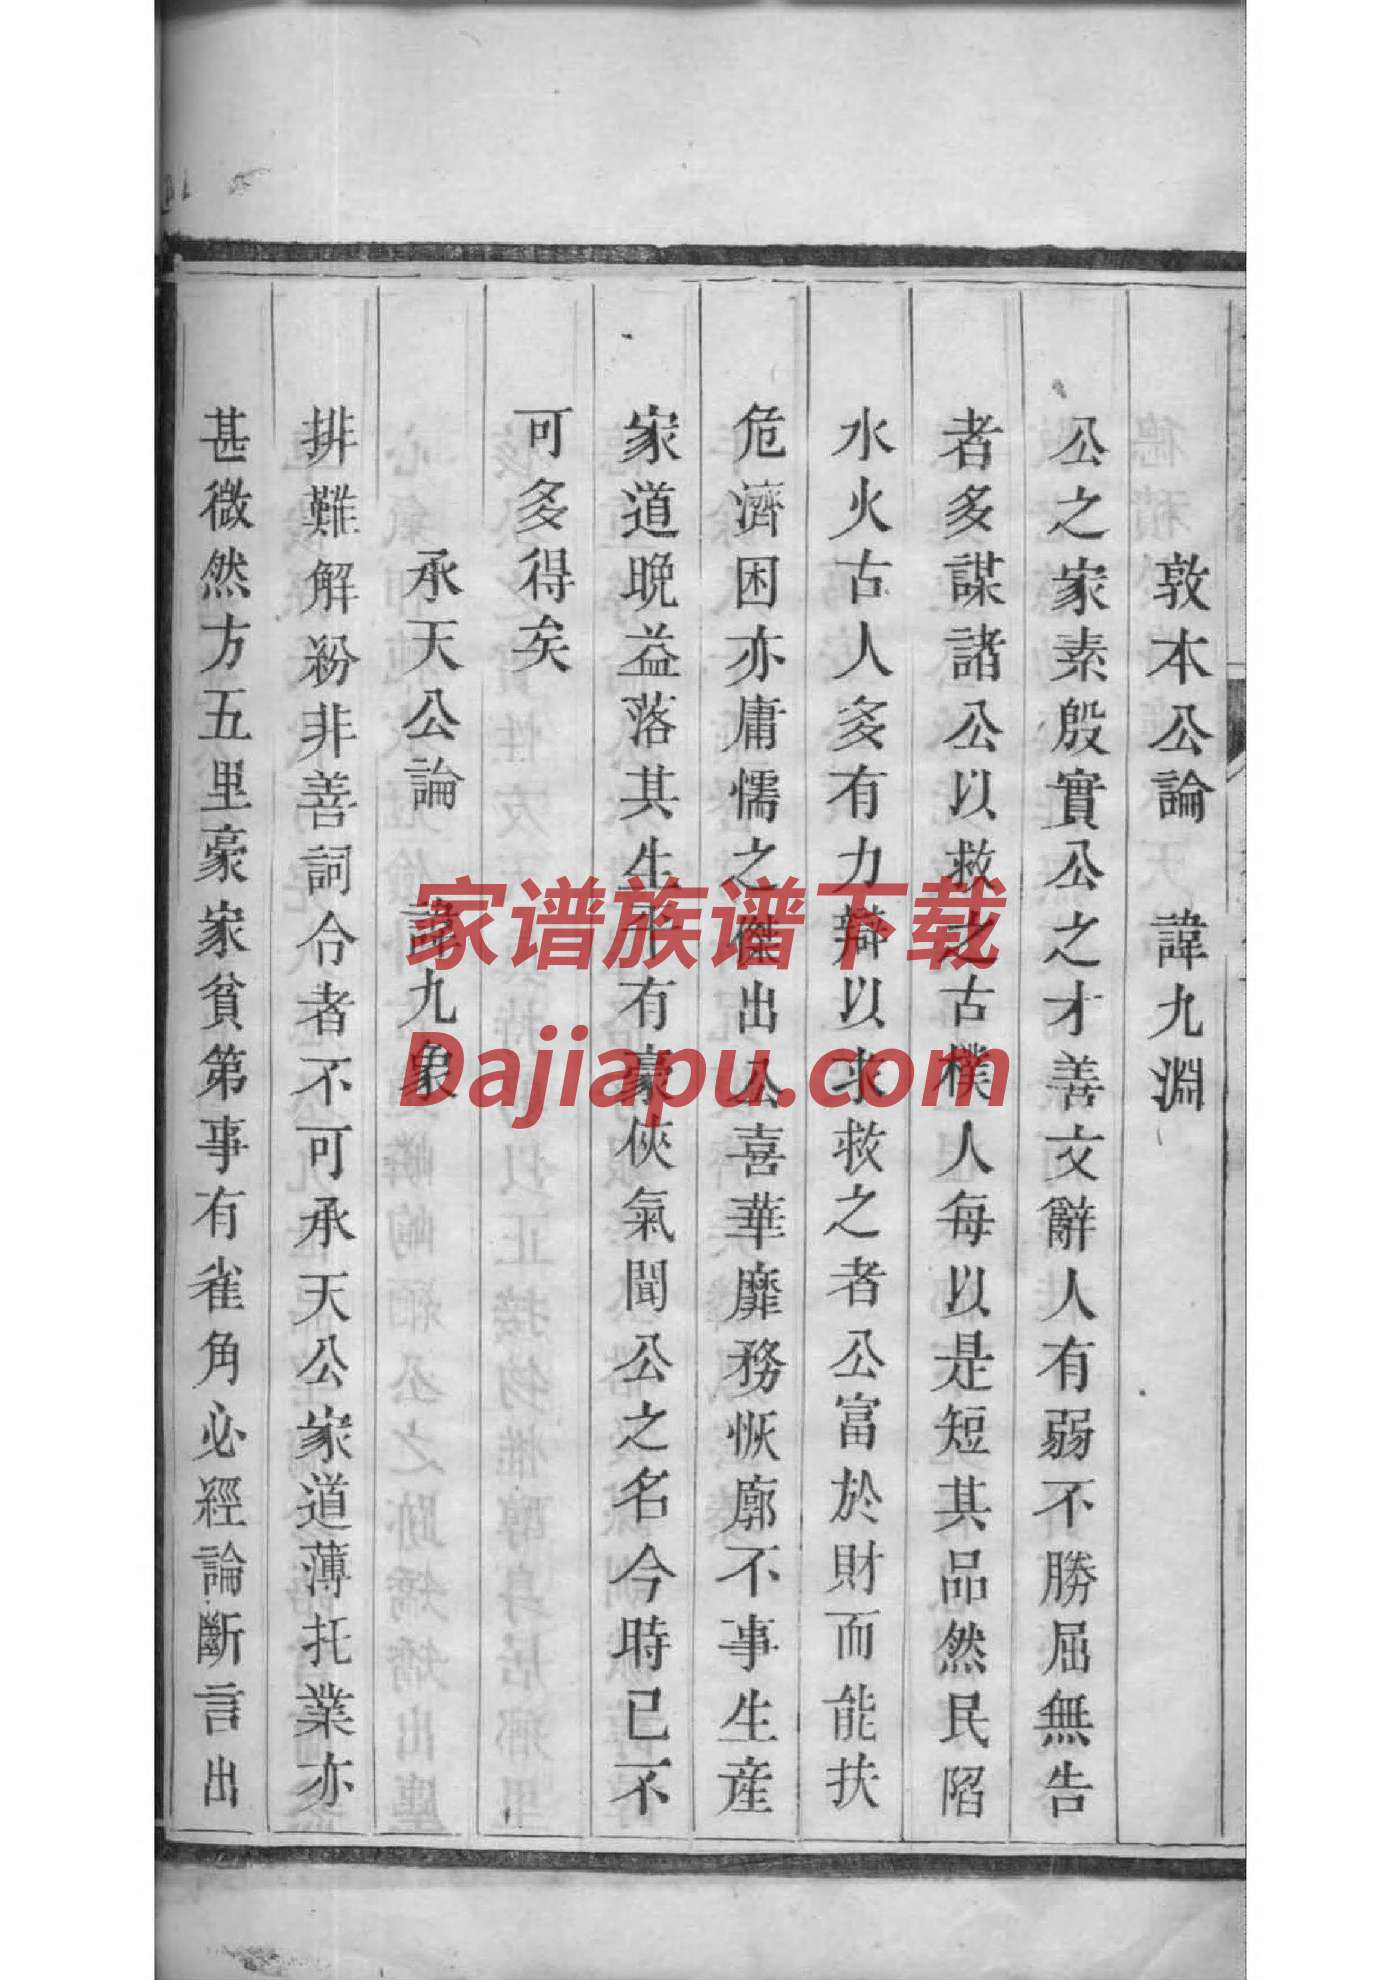 敦本公論　諱九淵
公之家素殷實公之才善文辭人有弱不勝屈無告
者多謀諸公以救之古樸人每以是短其品然民陷
水火古人多有力辯以求救之者公富於財而能扶
危濟困亦庸懦之傑出公喜華靡務恢廓不事生産
家道晚益落其生平有豪俠氣聞公之名今時已不
可多得矣
承天公論　諱九象
排難解紛非善詞令者不可承天公家道薄托業亦
甚微然方五里豪家貧第事有雀角必經論斷言出
家谱族谱下载
Dajiapu.com